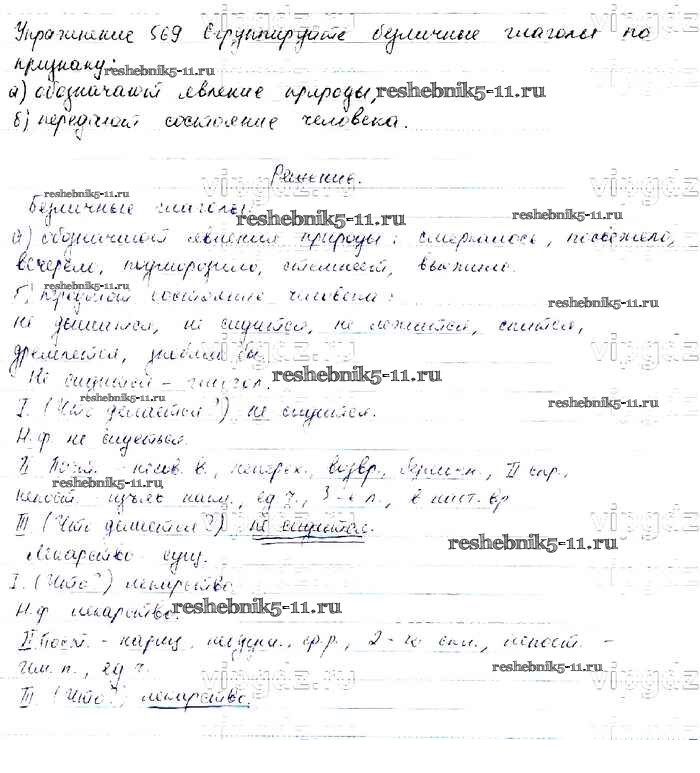 Упражнение 569 Сгруппируйте безличные глаголы по
признаку:
а) обозначают явление природы,
б) передают состояние человека.
Решение.
Безличные глаголы:
а) обозначают явления природы: смеркалось, посвежело,
вечерело, подморозило, стемнеет,
б) передают состояние человека:
не дышится, не сидится, не лежится, спится,
дремлется,
Не сидится - глагол.
I. (Что делается?) не сидится.
Н.ф. не сидеться.
II Пост. - несов в., неперех., возвр., II спр.,
непост. - изъяв накл., ед ч., 3-е л., в наст. вр
III (Что делается?) не сидится.
Лекарство - сущ.
I. (Что?) лекарство.
Н.ф лекарство.
II Пост. - нариц, неодуш., ср.р., 2-е скл., непост. -
им. п., ед ч.
III (Что?) лекарство.
reshebnik5-11.ru
vipgdz.ru